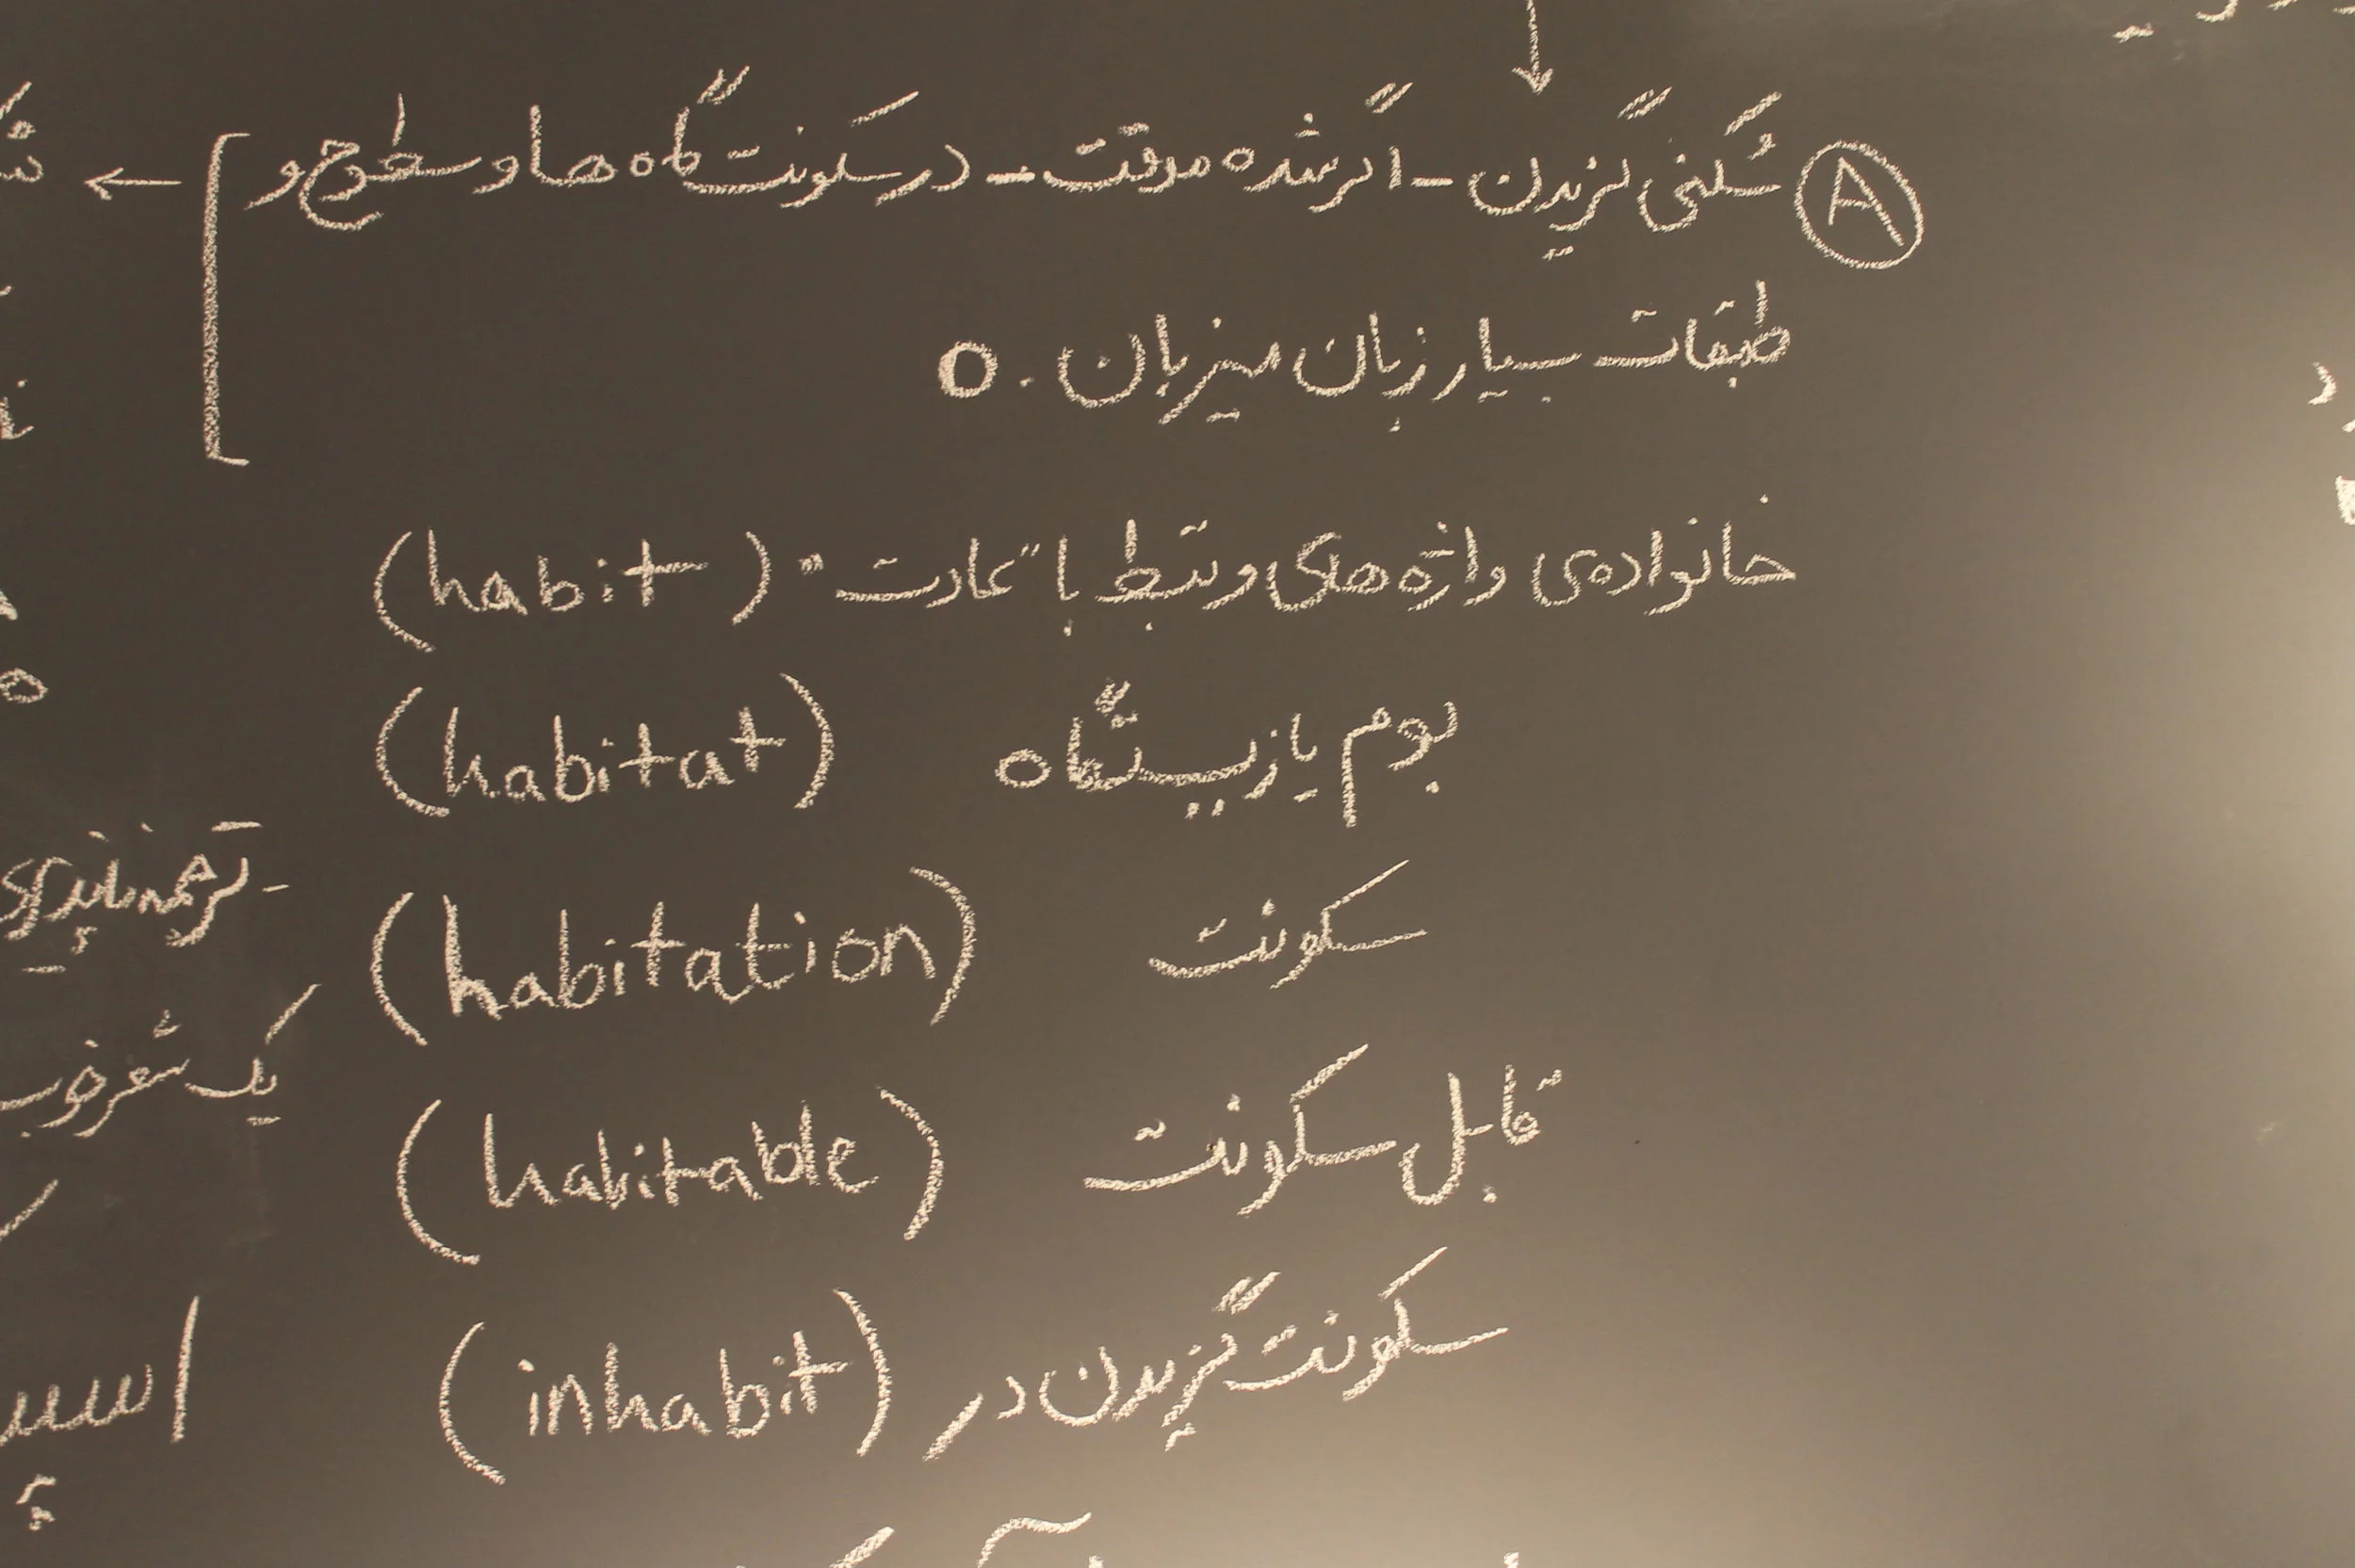 Ⓐ سُکنی گزیدن - اگر شده موقت - در سکونت گاه ها و سطوح و
طبقات بسیار زبان میزبان . o
خانواده‌ی واژه های وتبط با "عادت" (habit)
بوم یا زیستگاه (habitat)
سکونت (habitation)
قابل سکونت (habitable)
سکونت گزیدن در (inhabit)
ترجمه‌ناپذیری
یک شعر خوب